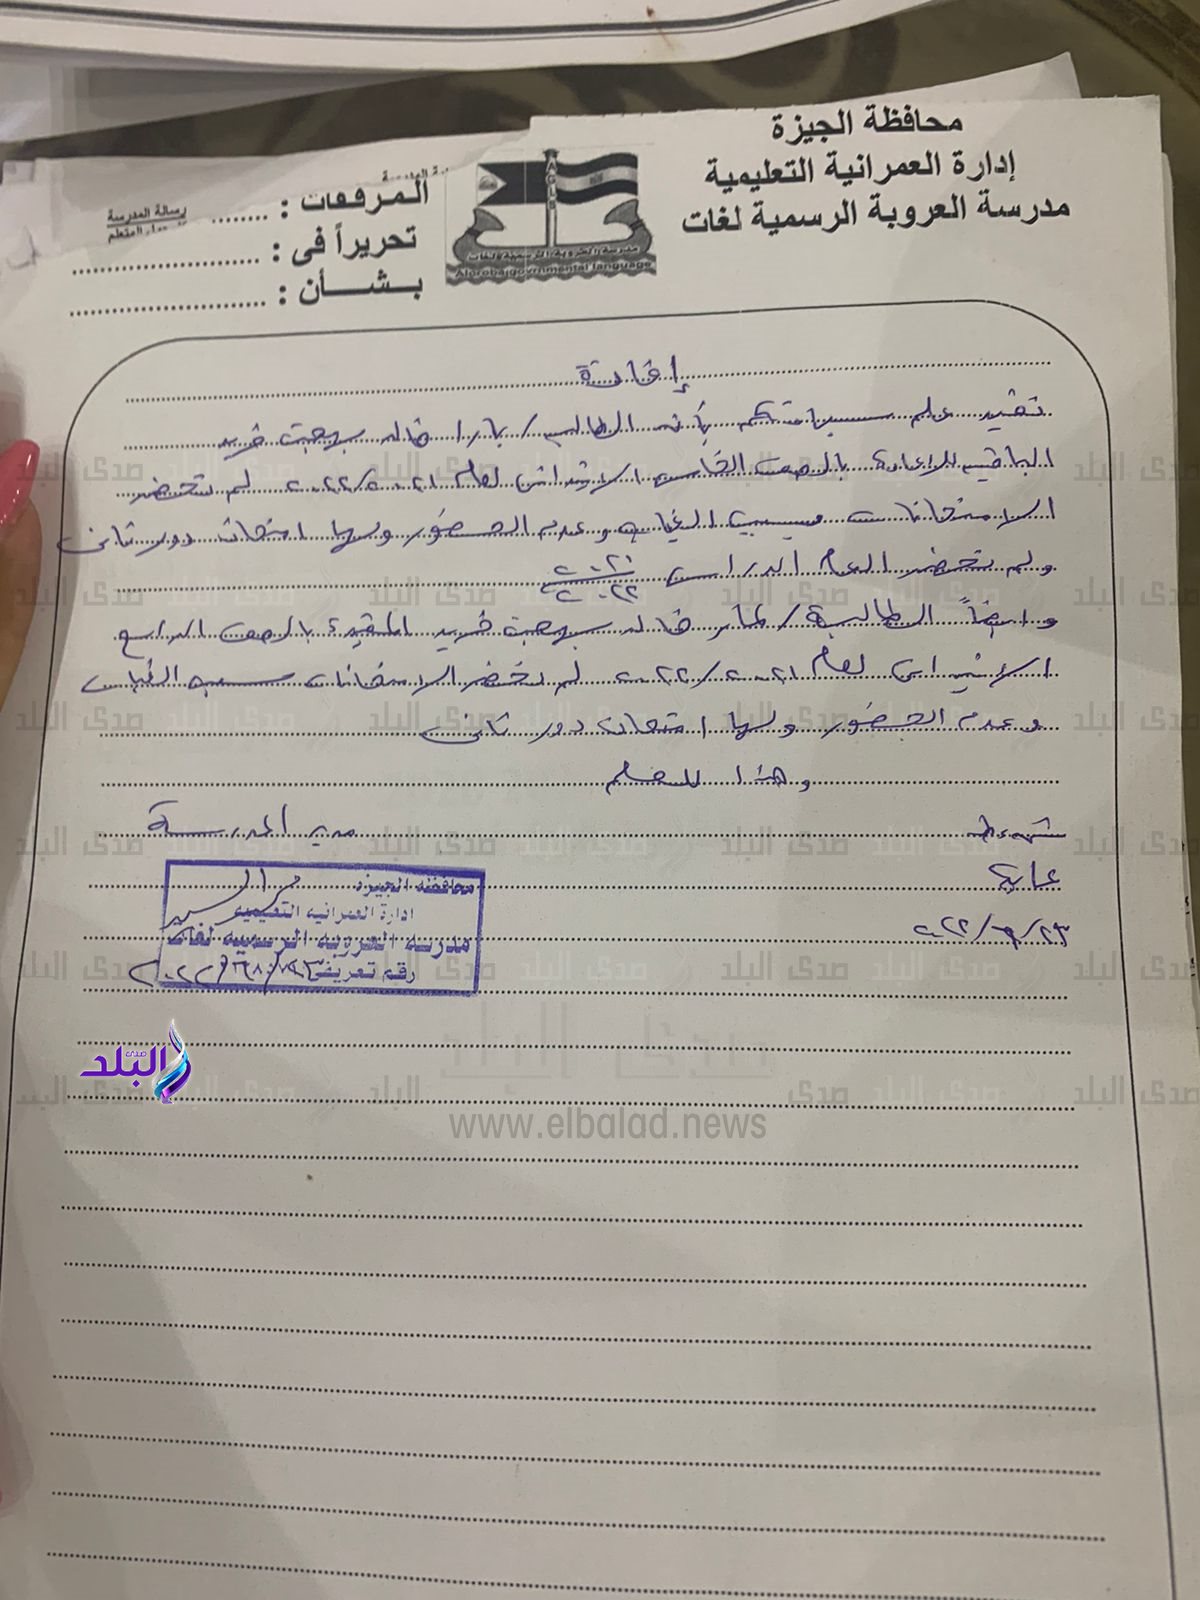 محافظة الجيزة
إدارة العمرانية التعليمية
مدرسة العروبة الرسمية لغات
A G L S
مدرسة العروبة الرسمية لغات
Aloroba govnmental language
المرفقات : ........
تحريراً فى : ........
بشأن : ........
رسالة المدرسة
إفادة
تفيد علم سيادتكم بأن الطالب / يارا خالد بهجت فريد
الباقية للإعادة بالصف الخامس الابتدائى لعام ٢٠٢١/٢٠٢٢ لم تحضر
الامتحانات بسبب الغياب وعدم الحضور ولها امتحان دور ثانى
ولم تحضر العام الدراسى
وايضاً الطالبة / خالد بهجت فريد المقيدة بالصف الرابع
الابتدائى لعام ٢٠٢١/٢٠٢٢ لم تحضر الامتحانات بسبب الغياب
وعدم الحضور ولها امتحان دور ثانى
وهذا للعلم
مدير المدرسة
محافظة الجيزة
ادارة العمرانية التعليمية
مدرسة العروبة الرسمية لغات
رقم تعريف
صدى البلد
www.elbalad.news